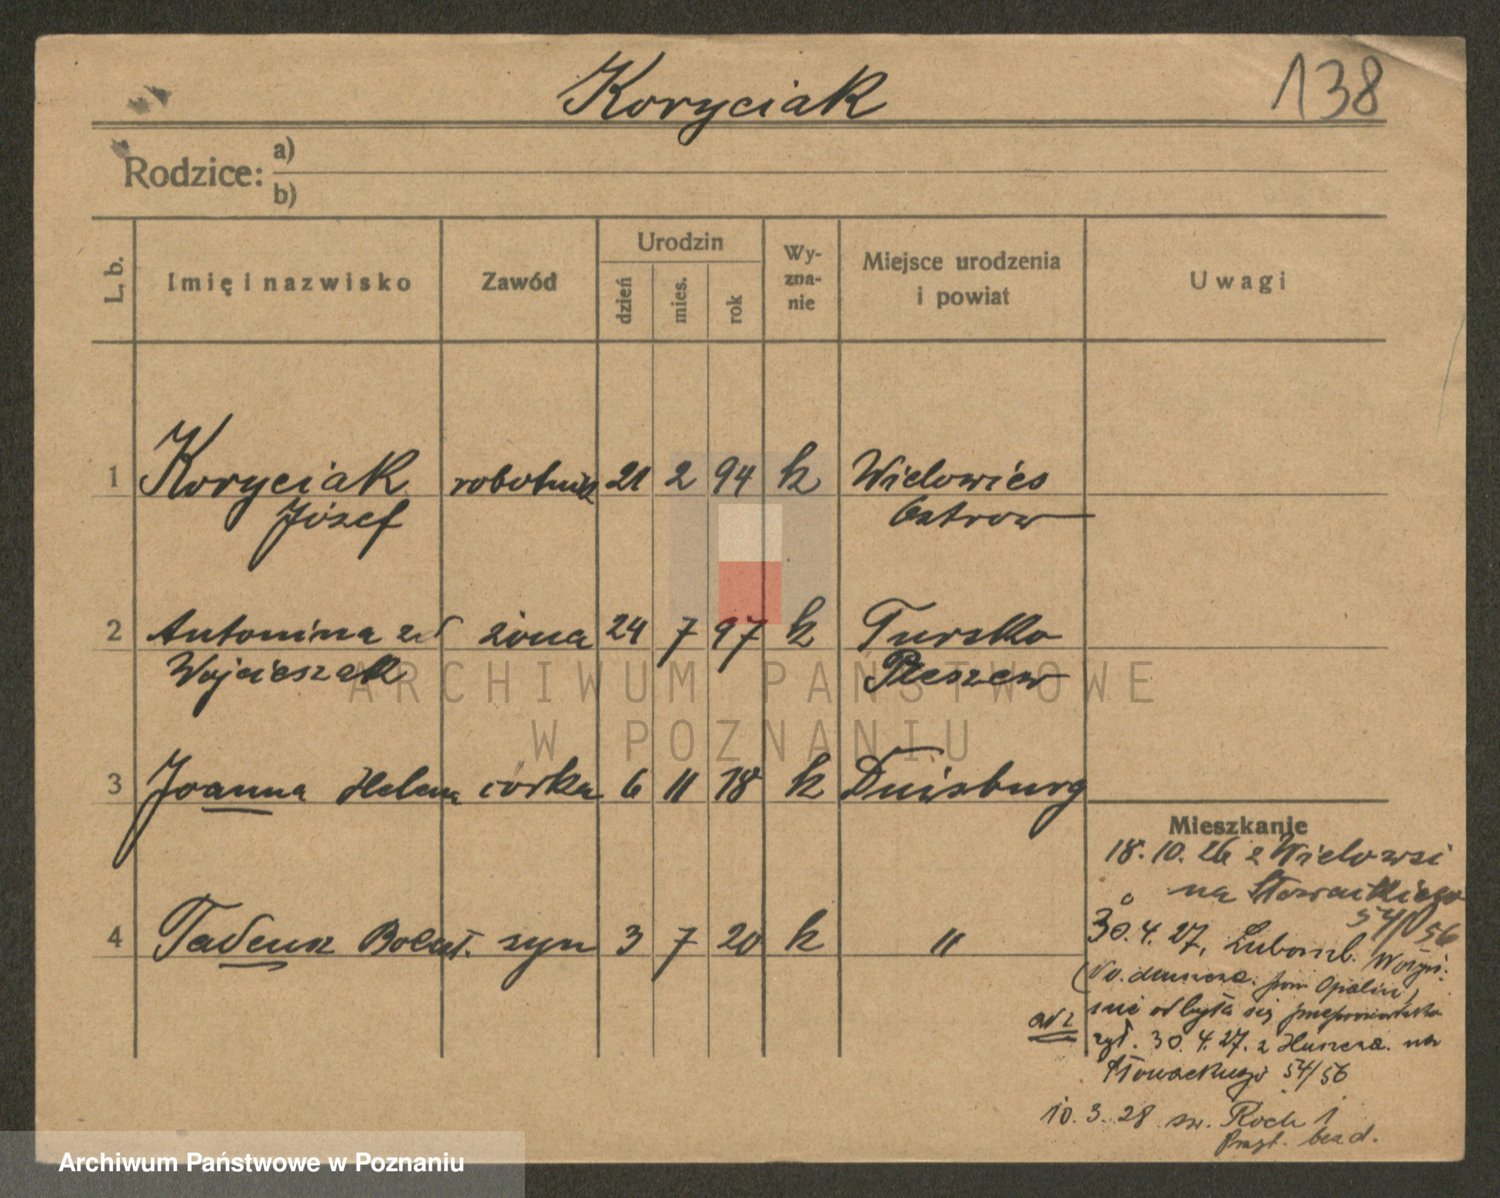 Koryciak
138
Rodzice: a)
b)
L. b.
Imię i nazwisko
Zawód
Urodzin
dzień
mies.
rok
Wy-
zna-
nie
Miejsce urodzenia
i powiat
Uwagi
1 Koryciak robotnik 21 2 94 k Wielowieś
Józef Ostrow
2 Antonina zd żona 24 7 97 k Tursko
Wojcieszak Pleszew
3 Joanna Helena córka 6 11 18 k Duisburg
4 Tadeusz Bolesł. syn 3 7 20 k "
Mieszkanie
18. 10. 26 z Wielowsi
na Słowackiego
54/56
30. 4. 27,
nie odbyła się
30. 4. 27. z na
Słowackiego 54/56
10. 3. 28 św. Roch 1
ARCHIWUM PAŃSTWOWE
W POZNANIU
Archiwum Państwowe w Poznaniu